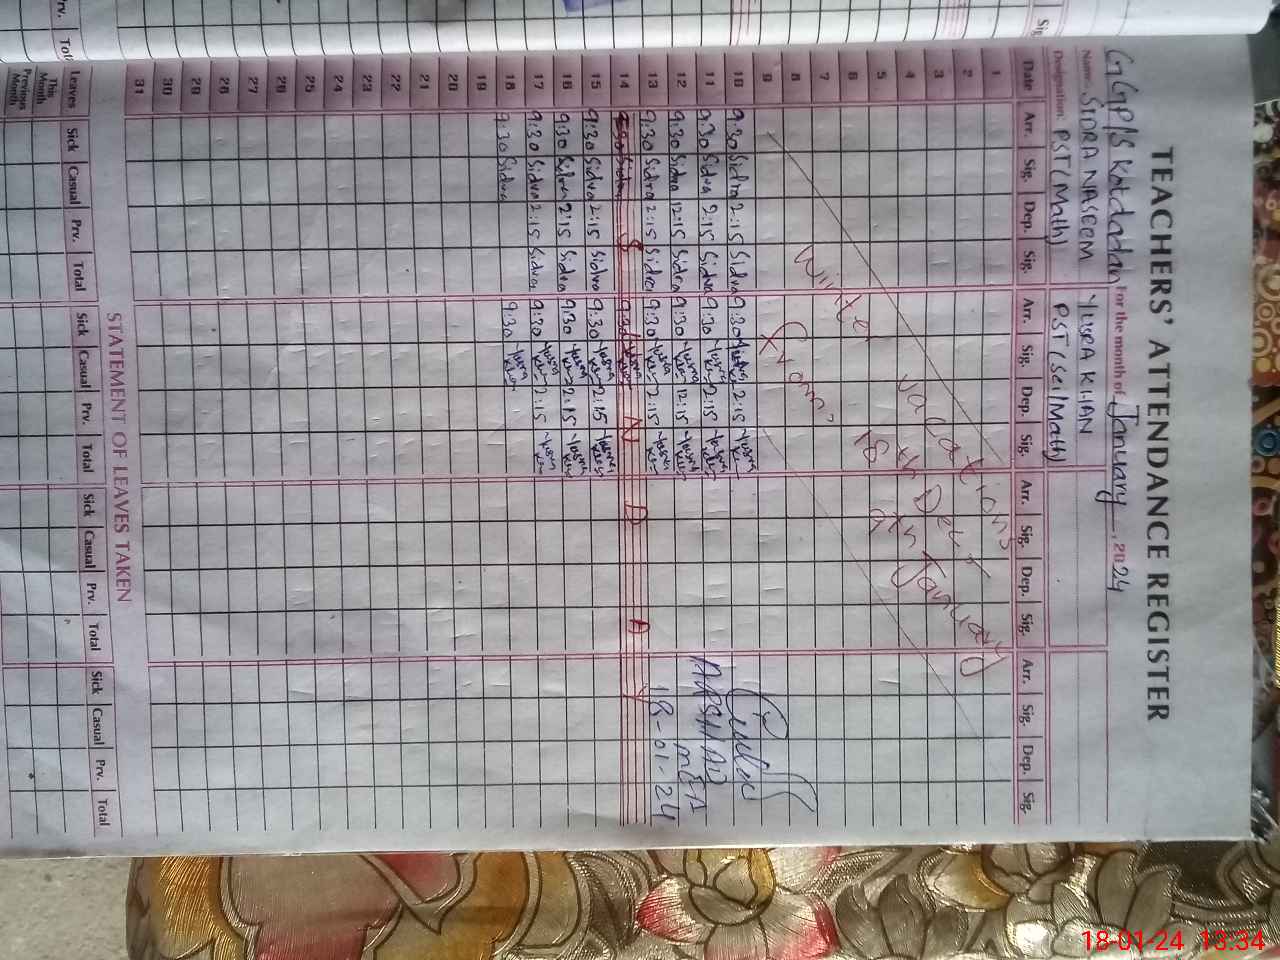 TEACHERS' ATTENDANCE REGISTER
GGP/S Kotdadan For the month of January, 2024
Name. SIDRA NASEEM YUSRA KHAN
Designation: PST(Math) PST(Sci/Math)
Date Arr. Sig. Dep. Sig. Arr. Sig. Dep. Sig. Arr. Sig. Dep. Sig. Arr. Sig. Dep. Sig.
1
2
3
4
5
6
7
8
9
Winter vacations
From, 18th Dec
9th January
10 9:30 Sidra 2:15 Sidra 9:30 Yusra 2:15 Yusra
11 9:30 Sidra 2:15 Sidra 9:30 Yusra 2:15 Yusra
12 9:30 Sidra 12:15 Sidra 9:30 Yusra 12:15 Yusra
13 9:30 Sidra 2:15 Sidra 9:30 Yusra 2:15 Yusra
14 9:30 Sidra S U N D A Y
15 9:30 Sidra 2:15 Sidra 9:30 Yusra 2:15 Yusra
16 9:30 Sidra 2:15 Sidra 9:30 Yusra 2:15 Yusra
17 9:30 Sidra 2:15 Sidra 9:30 Yusra 2:15 Yusra
18 9:30 Sidra 9:30 Yusra
ARSHAD
MEA
18-01-24
19
20
21
22
23
24
25
26
27
28
29
30
31
STATEMENT OF LEAVES TAKEN
Leaves Sick Casual Prv. Total Sick Casual Prv. Total Sick Casual Prv. Total Sick Casual Prv. Total
This Month
Previous Month
Sig
Prv.
18-01-24 13:34